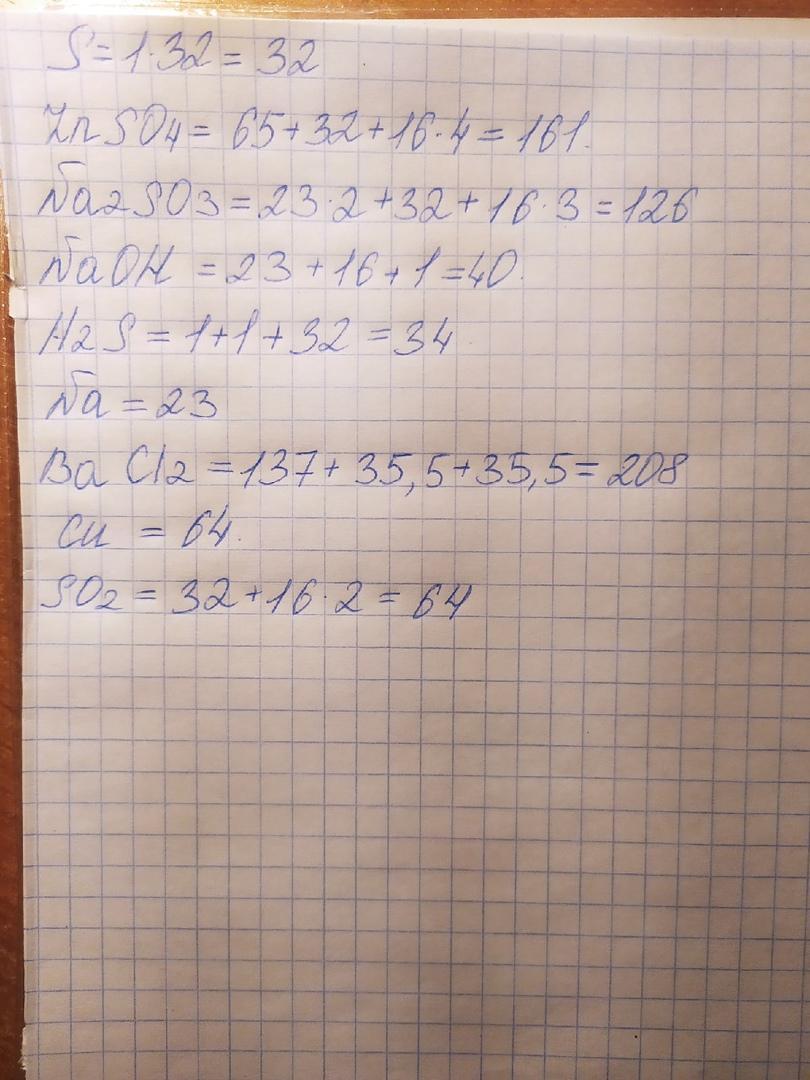 S = 1·32 = 32
ZnSO4 = 65+32+16·4 = 161.
Na2SO3 = 23·2+32+16·3 = 126
NaOH = 23+16+1 = 40.
H2S = 1+1+32 = 34
Na = 23
BaCl2 = 137+35,5+35,5 = 208
Cu = 64.
SO2 = 32+16·2 = 64